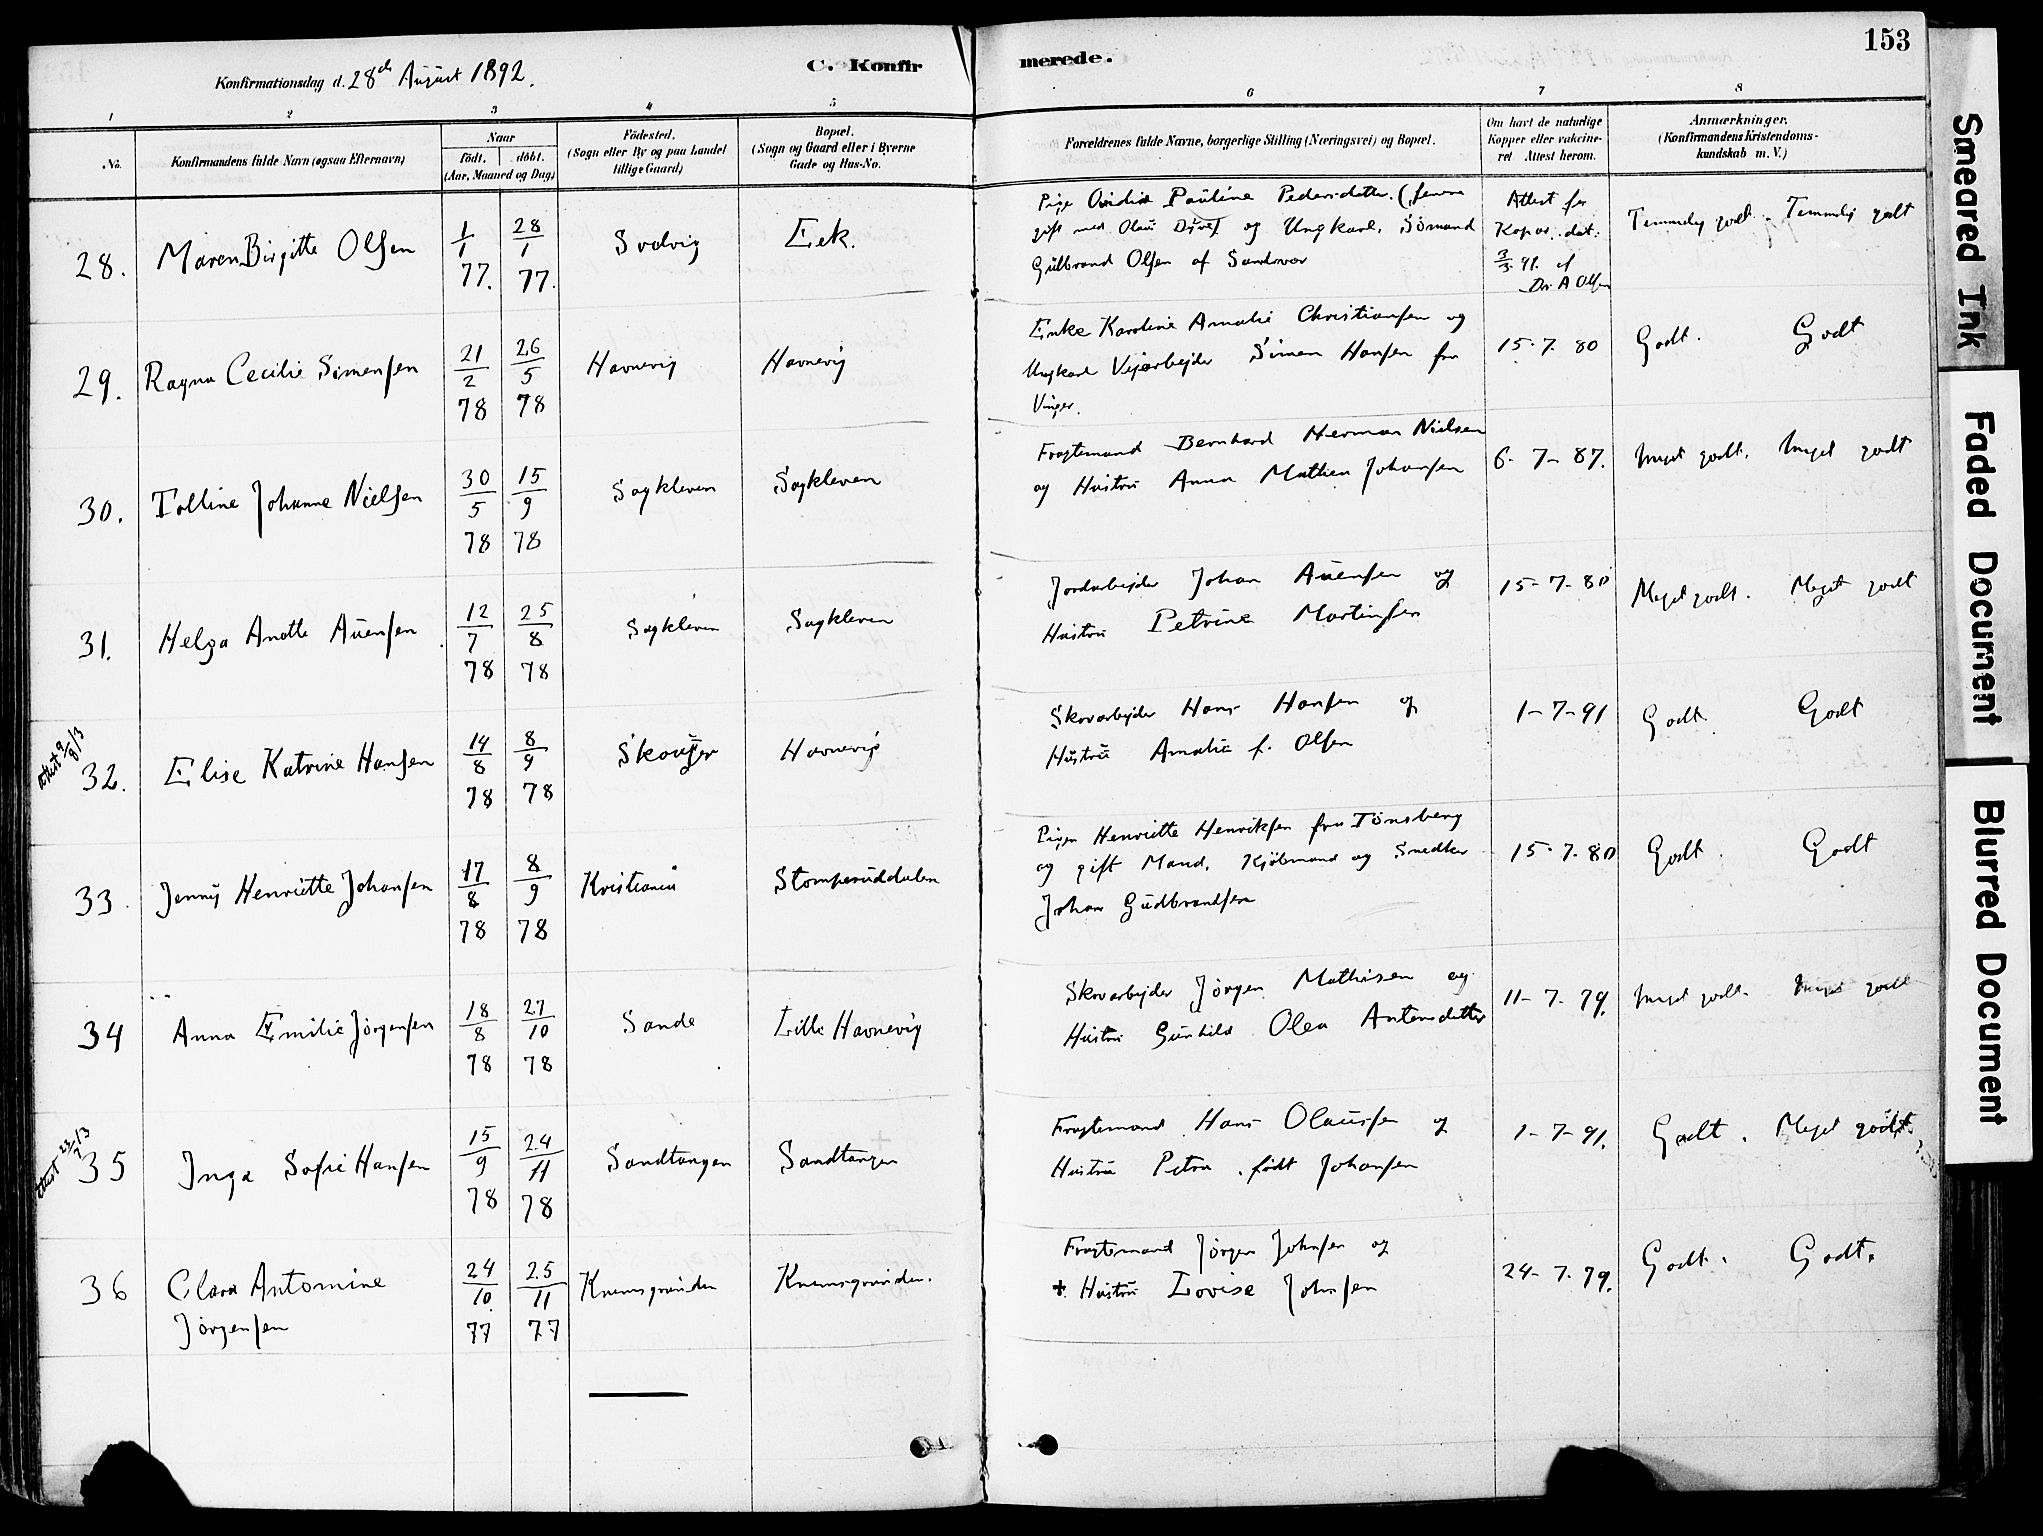 153
Konfirmationsdag d. 28de August 1892.
C. Konfirmerede.
1 2 3 4 5 6 7 8
No.
Konfirmandens fulde Navn (ogsaa Efternavn)
Naar
født. døbt.
(Aar, Maaned og Dag)
Fødested.
(Sogn eller By og paa Landet tillige Gaard)
Bopæl.
(Sogn og Gaard eller i Byerne Gade og Hus-No.
Forældrenes fulde Navne, borgerlige Stilling (Næringsvei) og Bopæl.
Om havt de naturlige Kopper eller vakcineret Attest herom.
Anmærkninger.
(Konfirmandens Kristendomskundskab m. V.)
28. Maren Birgitte Olsen 1/1 77. 28/1 77. Svelvig Eek.
Pige Pauline Pedersdatter. (senere
gift med Olaus og Ungkarl, Sömand
Gulbrand Olsen af
Attest for
Kopor. dat.
3/3 91. af
Dr. A Olsen
Temmelig godt. Temmelig godt
29. Ragna Cecilie Simensen 21/2 78 26/5 78 Havnevig Havnevig
Enke Karoline Amalie Christiansen og
Ungkarl Vejarbejder Simen Hansen fra
Vinger.
15-7. 80 Godt. Godt
30. Talline Johanne Nielsen 30/5 78 15/9 78 Sagkleven Sagkleven
Fragtemand Bernhard Herman Nielsen
og Hustru Anna Mathea Johansen
6-7-87. Meget godt. Meget godt
31. Helga Anette Auensen 12/7 78 25/8 78 Sagkleven Sagkleven
Jordarbejder Johan Auensen og
Hustru Petrine Martinsen
15-7-80 Meget godt. Meget godt
Attest 9/9 13
32. Elise Katrine Hansen 14/8 78 8/9 78 Skouger Havnevig
Skovarbejder Hans Hansen og
Hustru Amalie f. Olsen
1-7-91 Godt. Godt
33. Jenny Henriette Johansen 17/8 78 8/9 78 Kristiania Stomperuddalen
Pigen Henriette Henriksen fra Tönsberg
og gift Mand, Kjöbmand og Snedker
Johan Gudbrandsen
15-7.80 Godt. Godt
34 Anna Emilie Jörgensen 18/8 78 27/10 78 Sande Lille Havnevig
Skovarbejder Jörgen Mathisen og
Hustru Gunhild Olea Antonsdatter
11-7.79. Meget godt. Meget godt
35 Inga Sofie Hansen 15/9 78 24/11 78 Sandtangen Sandtangen
Fragtemand Hans Olaussen og
Hustru Petra, født Johansen
1-7-91. Godt. Meget godt
36 Clara Antomine
Jörgensen
24/10 77 25/11 77 Knemsgrinden Knemsgrinden.
Fragtemand Jörgen Johnsen og
+ Hustru Lovise Johnsen
24-7.79. Godt. Godt.
Smeared Ink
Faded Document
Blurred Document